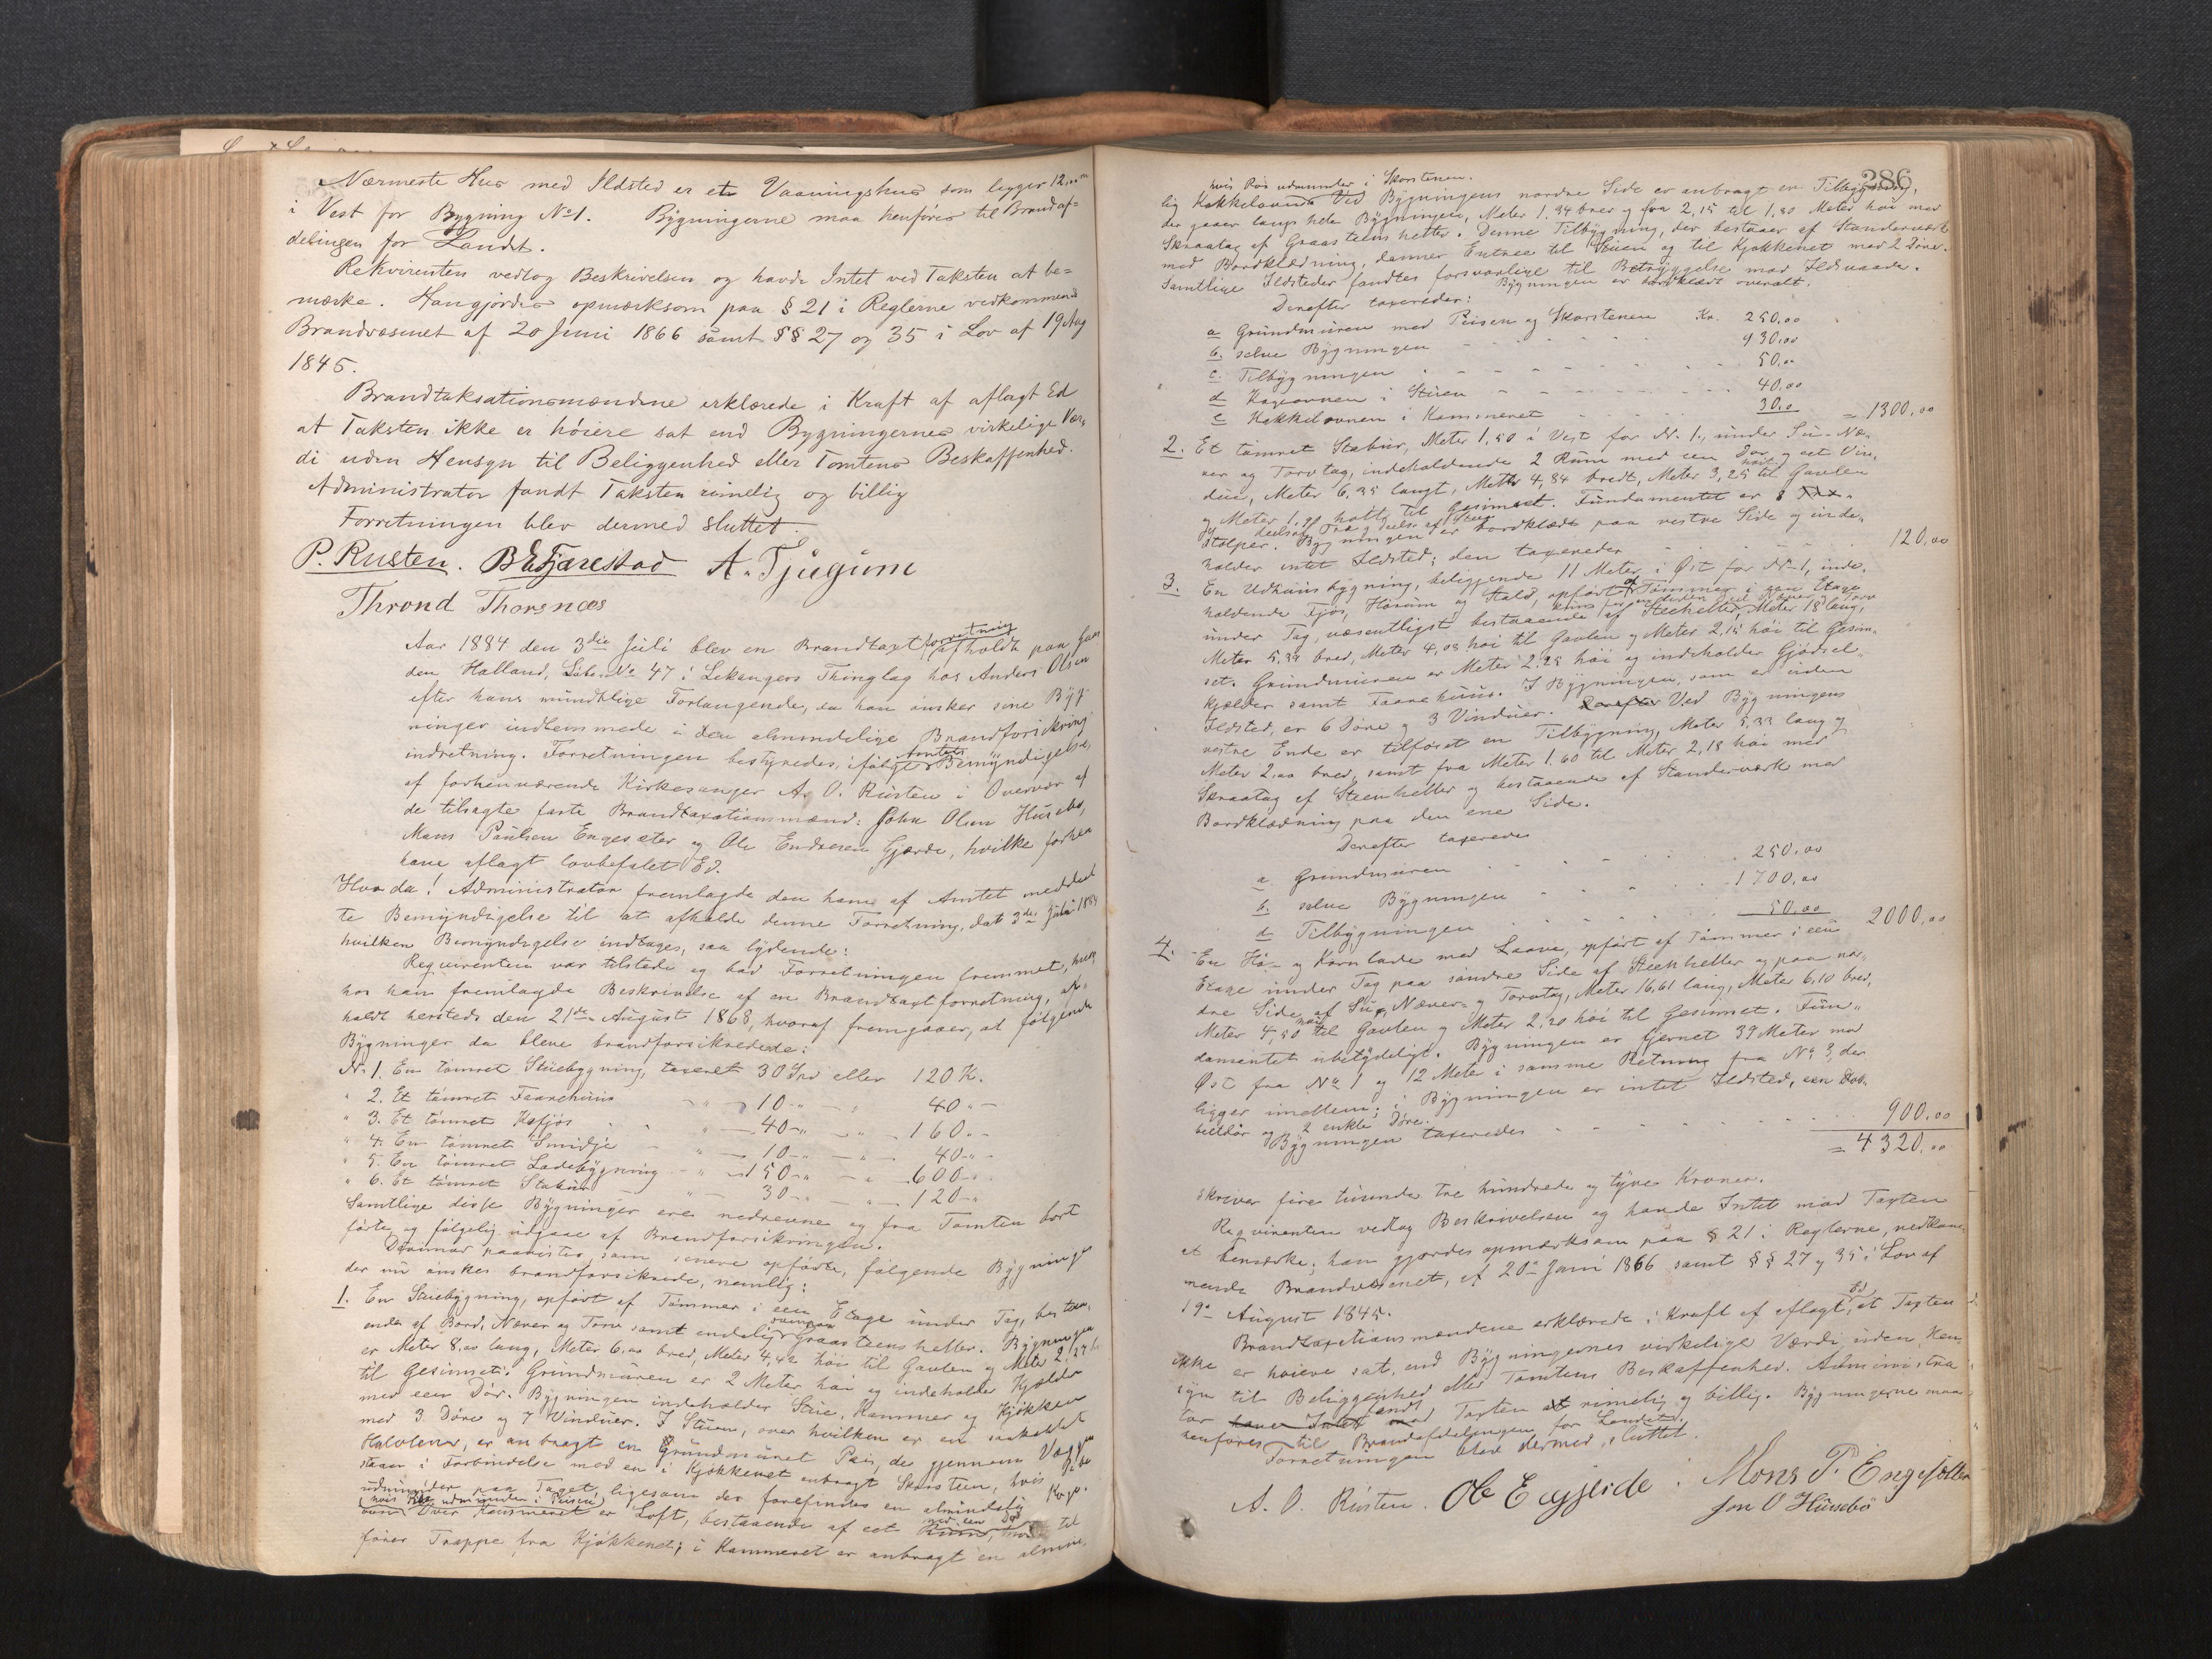 Nærmeste Hus med Ildsted er et Vaaningshus som ligger 12,00 m
i Vest for Bygning No 1. Bygningerne maa henføres til Brandaf=
delingen for Landet.
Rekvirenten vedtog Beskrivelsen og havde Intet ved Taksten at be=
mærke. Han gjordes opmærksom paa § 21 i Reglerne vedkommende
Brandvæsenet af 20 Juni 1866 samt §§ 27 og 35 i Lov af 19 Aug
1845.
Brandtaksationsmændene erklærede i Kraft af aflagt Ed
at Taksten ikke er høiere sat end Bygningernes virkelige Vær,
di uden Hensyn til Beliggenhed eller Tomtens Beskaffenhed.
Administrator fandt Taksten rimelig og billig
Forretningen blev dermed sluttet.
P. Rusten. B E Fjærestad A. Tjugum
Thrond Thorsnæs
Aar 1884 den 3die Juli blev en Brandtaxtforretning afholdt paa Gaar
den Halland, Løbe No 47 i Lekangers Thinglag hos Anders Olsen
efter hans mundtlige Forlangende, da han ønsker sine Byg
ninger indlemmede i den almindelige Brandforsikring
indretning. Forretningen bestyredes, ifølge Amtets Bemyndigelse,
af forhenværende Kirkesanger A. O. Rusten i Overvær af
de tilsagte faste Brandtaxationsmænd: John Olsen Husebø,
Mons Paulsen Engesæter og Ole Endresen Gjærde, hvilke forhen
have aflagt lovbefalet Ed.
Hvorda! Administrator fremlagde den ham af Amtet meddeel
te Bemyndigelse til at afholde denne Forretning, dat. 3die Juli 1884
hvilken Bemyndigelse indtages, saa lydende:
Requirenten var tilstede og bad Forretningen fremmet, hvor,
hos han fremlagde Beskrivelse af en Brandtaxtforretning, af,
holdt hersteds den 21de August 1868, hvoraf fremgaaer, at følgende
Bygninger da bleve brandforsikrede:
No 1. En tømret Stuebygning, taxeret 30 Spd eller 120 K.
" 2. Et tømret Faarehuus - " - 10 - " - 40 " -
" 3. Et tømret Kofjøs - " - 40 - " - 160 " -
" 4. En tømret Smidje - " - 10 - " - 40 - " -
" 5. En tømret Ladebygning - " - 150 - " - 600 - "
" 6. Et tømret Stabur - " - 30 - " - 120 - "
Samtlige disse Bygninger ere nedrevne og fra Tomten bort
førte og følgelig udgaae af Brandforsikringen.
Derimod paavistes, som senere opførte, følgende Bygninger
der nu ønskes brandforsikrede, nemlig:
1. En Stuebygning, opført af Tømmer i een Etage under Tag, bestaa,
ende af Bord, Næver og Torv samt endelig ovenpaa Graasteenshelle. Bygningen
er Meter 8,00 lang, Meter 6,00 bred, Meter 4,42 høi til Gavlen og Meter 2,27 h.
til Gesimset. Grundmuren er 2 Meter høi og indeholder Kjælder
med een Dør. Bygningen indeholder Stue, Kammer og Kjøkken
med 3 Døre og 7 Vinduer. I Stuen, over hvilken er en saakaldt
Halvlem, er anbragt en Grundmuret Peis, der gjennem Væggen
staaer i Forbindelse med en i Kjøkkenet anbragt Skorsteen, hvis Pibe
udmunder paa Taget, ligesom der forefindes en almindelig Kogo-
vn (hvis Rør udmunder i Peisen) Over Kammeret er Loft, bestaaende af eet Rum, med een Dør til
fører Trappe fra Kjøkkenet; i Kammeret er anbragt en almin,
286
hvis Rør udmunder i Skorstenen.
lig Kakkelovn. Ved Bygningens nordre Side er anbragt en Tilbygning,
der gaaer langs hele Bygningen, Meter 1,34 bred og fra 2,15 til 1,80 Meter høi med
Skraatag af Graasteens heller. Denne Tilbygning, der bestaaer af Standerværk
med Bordklædning, danner Entree til Stuen og til Kjøkkenet med 2 Døre.
Samtlige Ildsteder fandtes forsvarlige til Betryggelse mod Ildsvaade.
Bygningen er bordklædt overalt.
Derefter taxeredes:
a Grundmuren med Peisen og Skorstenen Kr. 250,00
b. selve Bygningen 930,00
c. Tilbygningen 50,00
d Kogeovnen i Stuen 40,00
e Kakkelovnen i Kammeret 30,0 = 1300,00
2. Et tømret Stabur, Meter 1,50 i Vest for No. 1., under Su- Næ,
ver og Torvtag, indeholdende 2 Rum med een Dør og eet Vin,
due, Meter 6,35 langt, Meter 4,84 bredt, Meter 3,25 høit til Gavlen
og Meter 1,90 høit til Gesimset. Fundamentet er 8
Stolper. Bygningen er bordklædt paa vestre Side og inde,
holder intet Ildsted; den taxeredes 120,00
3. En Udhuusbygning, beliggende 11 Meter i Øst for No 1, inde,
holdende Fjøs, Hørum og Stald, opført af Tømmer i een Etage
under Tag, væsentligst bestaaende af Steenheller, Meter 18 lang,
Meter 5,33 bred, Meter 4,08 høi til Gavlen og Meter 2,15 høi til Gesim,
set. Grundmuren er Meter 2,25 høi og indeholder Gjødsel,
kjælder samt Faarehuus. I Bygningen, som er uden
Ildsted, er 6 Døre og 3 Vinduer. Derefter Ved Bygningens
vestre Ende er tilføiet en Tilbygning, Meter 5,33 lang og
Meter 2,00 bred, samt fra Meter 1,60 til Meter 2,18 høi med
Skraatag af Steenheller og bestaaende af Standerværk med
Bordklædning paa den ene Side.
Derefter taxeredes
a Grundmuren 250,00
b. selve Bygningen 1700,00
d Tilbygningen 50,00 2000,00
4. En Hø- og Kornlade med Laave, opført af Tømmer i een
Etage under Tag paa søndre Side af Steenheller og paa nor,
dre Side af Su-, Næver- og Torvtag, Meter 16,61 lang, Meter 6,10 bred,
Meter 4,50 høi til Gavlen og Meter 2,20 høi til Gesimset. Fun,
damentet ubetydeligt. Bygningen er fjernet 39 Meter mod
Øst fra No 1 og 12 Meter i samme Retning fra No 3, der
ligger imellem; i Bygningen er intet Ildsted, een Dob,
beltdør og 2 enkle Døre.
Bygningen taxeredes 900,00
= 4320,00
skriver fire tusinde tre hundrede og tyve Kroner.
Requirenten vedtog Beskrivelsen og havde Intet mod Taxten
at bemærke; han gjordes opmærksom paa § 21 i Reglerne, vedkom,
mende Brandvæsenet, af 20de Juni 1866 samt §§ 27 og 35 i Lov af
19de August 1845.
Brandtaxationsmændene erklærede i Kraft af aflagt Ed, at Taxten
ikke er høiere sat, end Bygningernes virkelige Værdi uden Hen
syn til Beliggenhed eller Tomtens Beskaffenhed. Administra
tor fandt Taxten rimelig og billig. Bygningerne maa
henføres til Brandafdelingen for Landet.
Forretningen blev dermed sluttet.
A. O. Rusten. Ole E Gjerde. Mons P. Engesæter
Jon O Husebø